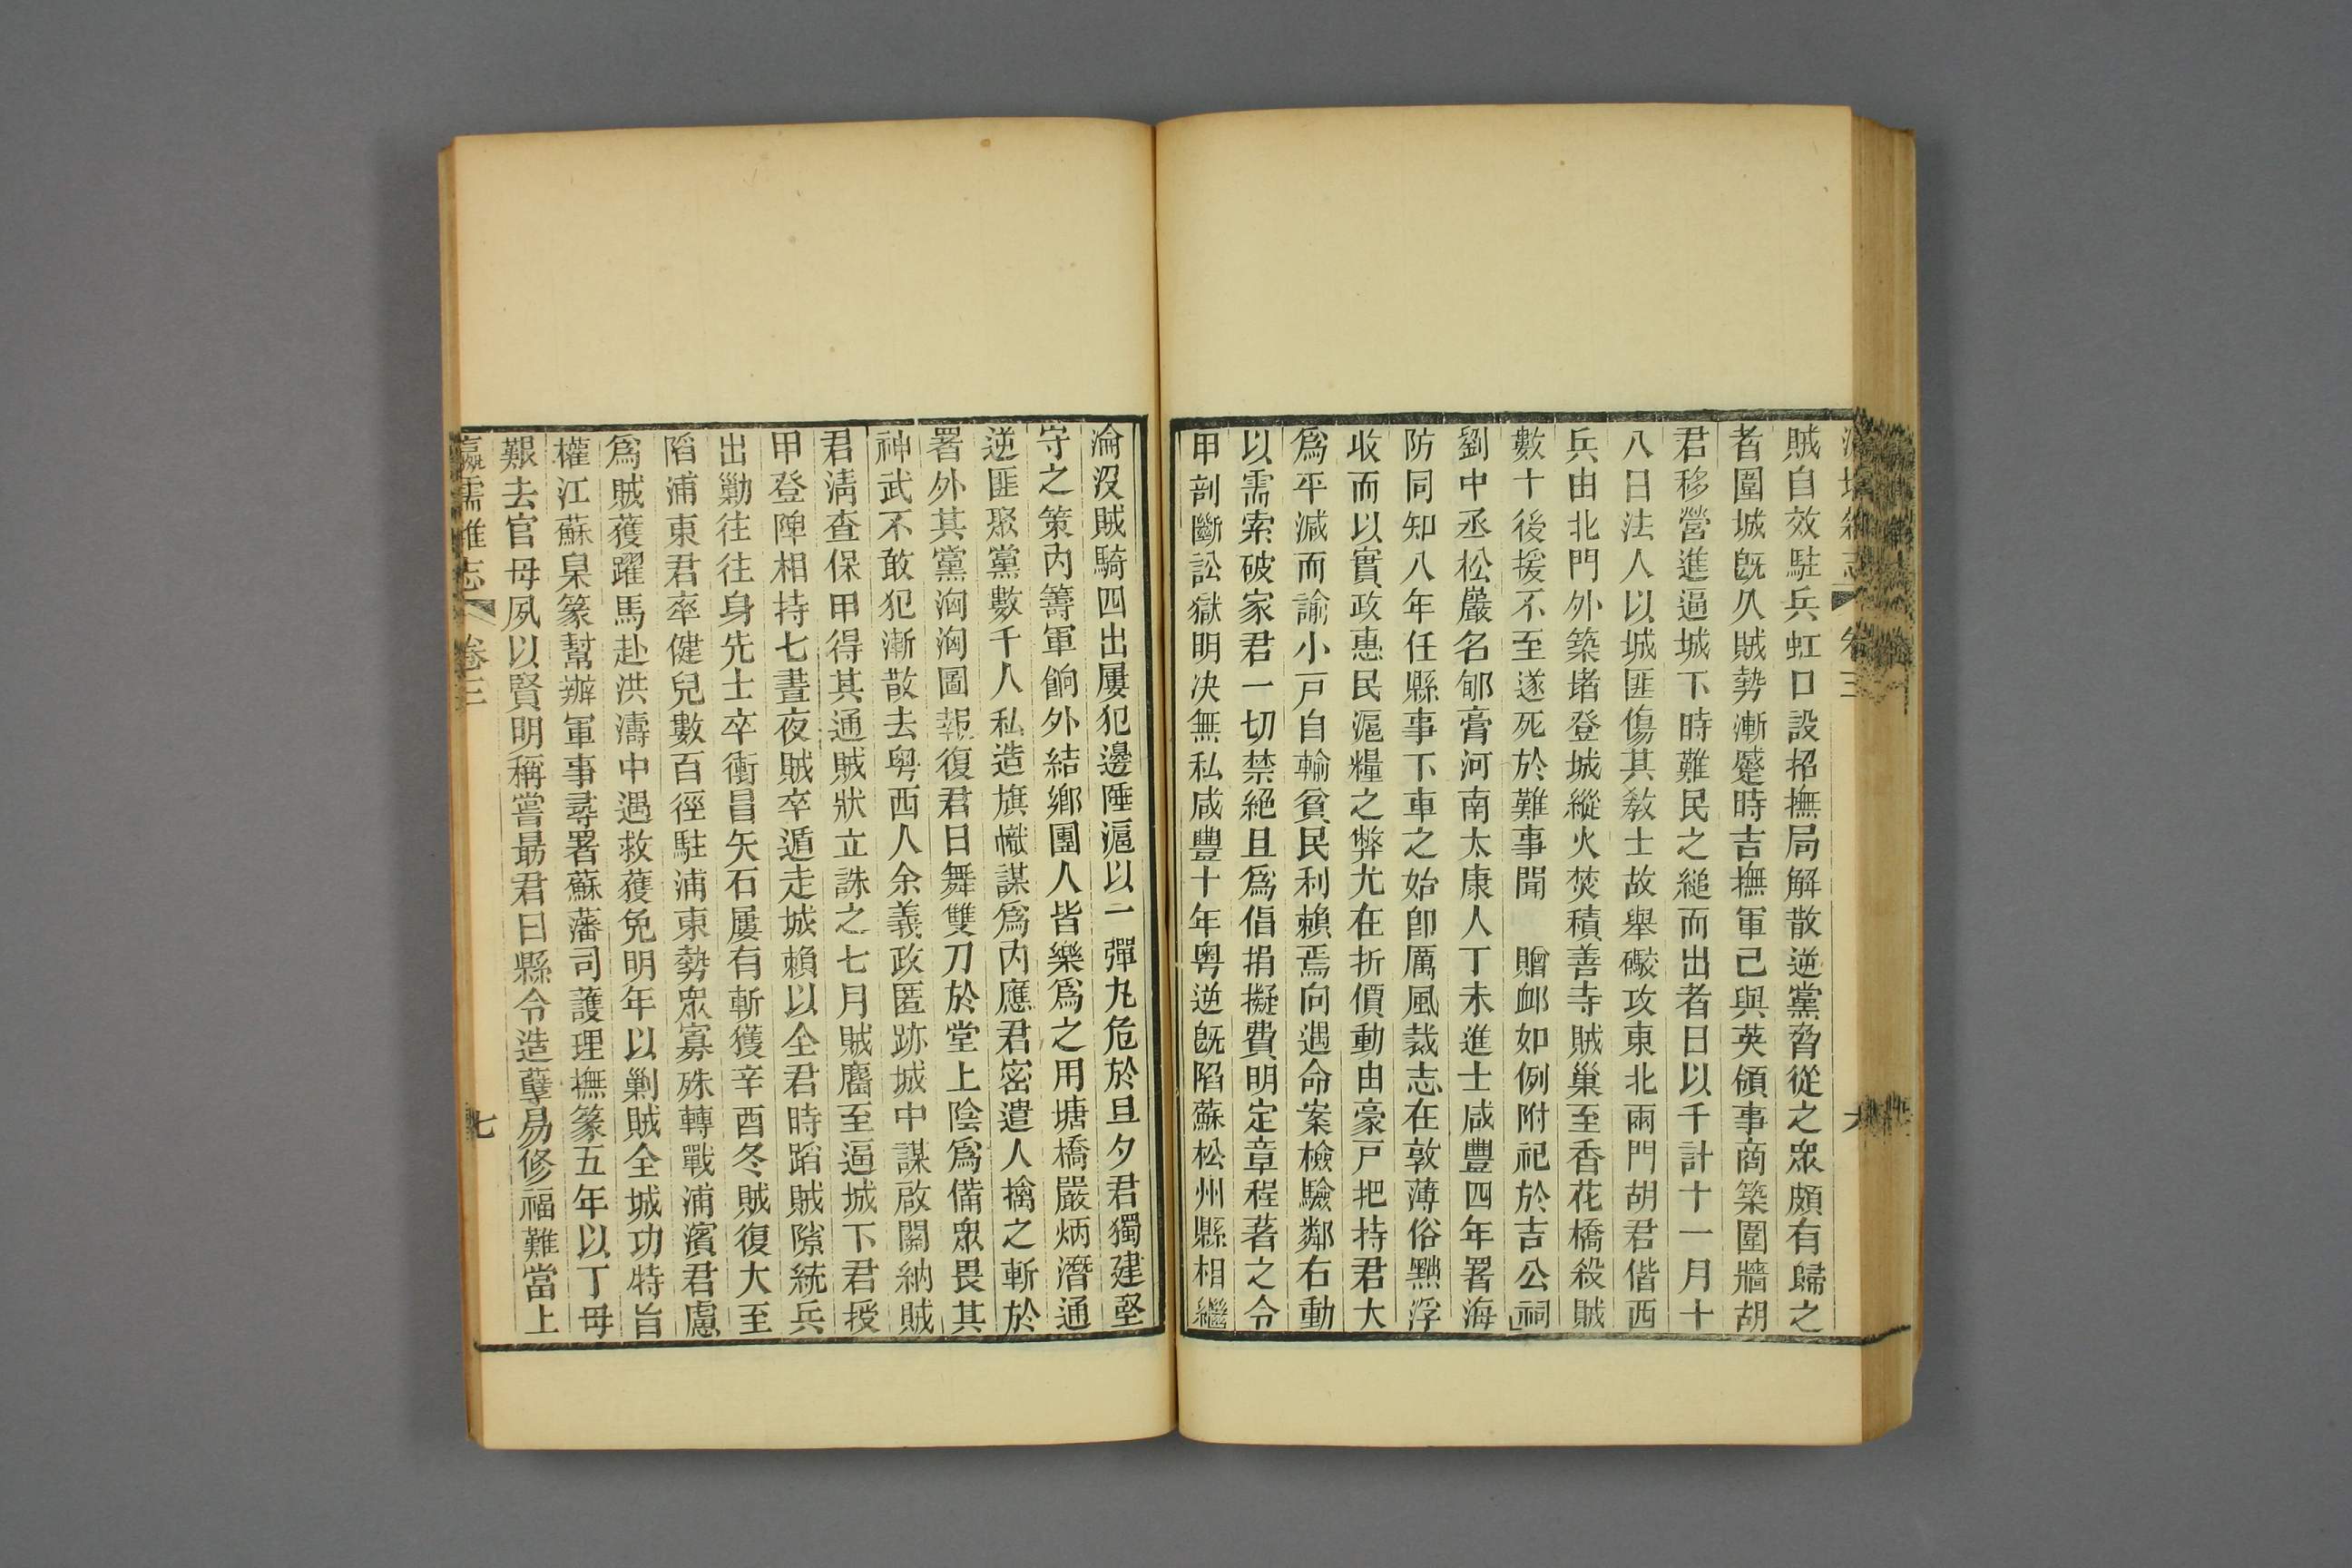 賊自效駐兵虹口設招撫局解散逆黨脅從之衆頗有歸之
者圍城旣久賊勢漸蹙時吉撫軍已與英領事商築圍牆胡
君移營進逼城下時難民之縋而出者日以千計十一月十
八日法人以城匪傷其敎士故舉礮攻東北兩門胡君偕西
兵由北門外築堵登城縱火焚積善寺賊巢至香花橋殺賊
數十後援不至遂死於難事聞　贈䘏如例附祀於吉公祠
劉中丞松巖名郇膏河南太康人丁未進士咸豐四年署海
防同知八年任縣事下車之始卽厲風裁志在敦薄俗黜浮
收而以實政惠民滬糧之弊尤在折價動由豪戸把持君大
爲平減而諭小戸自輸貧民利賴焉向遇命案檢驗鄰右動
以需索破家君一切禁絕且爲倡捐擬費明定章程著之令
甲剖斷訟獄明决無私咸豐十年粤逆旣陷蘇松州縣相繼
淪沒賊騎四出屢犯邊陲滬以一彈丸危於旦夕君獨建堅
守之策內籌軍餉外結鄉團人皆樂爲之用塘橋嚴炳潛通
逆匪聚黨數千人私造旗幟謀爲內應君密遣人擒之斬於
署外其黨洶洶圖報復君日舞雙刀於堂上陰爲備衆畏其
神武不敢犯漸散去粤西人余義政匿跡城中謀啟關納賊
君淸查保甲得其通賊狀立誅之七月賊麕至逼城下君授
甲登陴相持七晝夜賊卒遁走城賴以全君時蹈賊隙統兵
出勦往往身先士卒衝冒矢石屢有斬獲辛酉冬賊復大至
陷浦東君率健兒數百徑駐浦東勢衆寡殊轉戰浦濱君慮
爲賊獲躍馬赴洪濤中遇救獲免明年以剿賊全城功特旨
權江蘇臬篆幫辦軍事尋署蘇藩司護理撫篆五年以丁母
艱去官母夙以賢明稱嘗勗君曰縣令造孽易修福難當上
瀛壖雜志　卷三　七